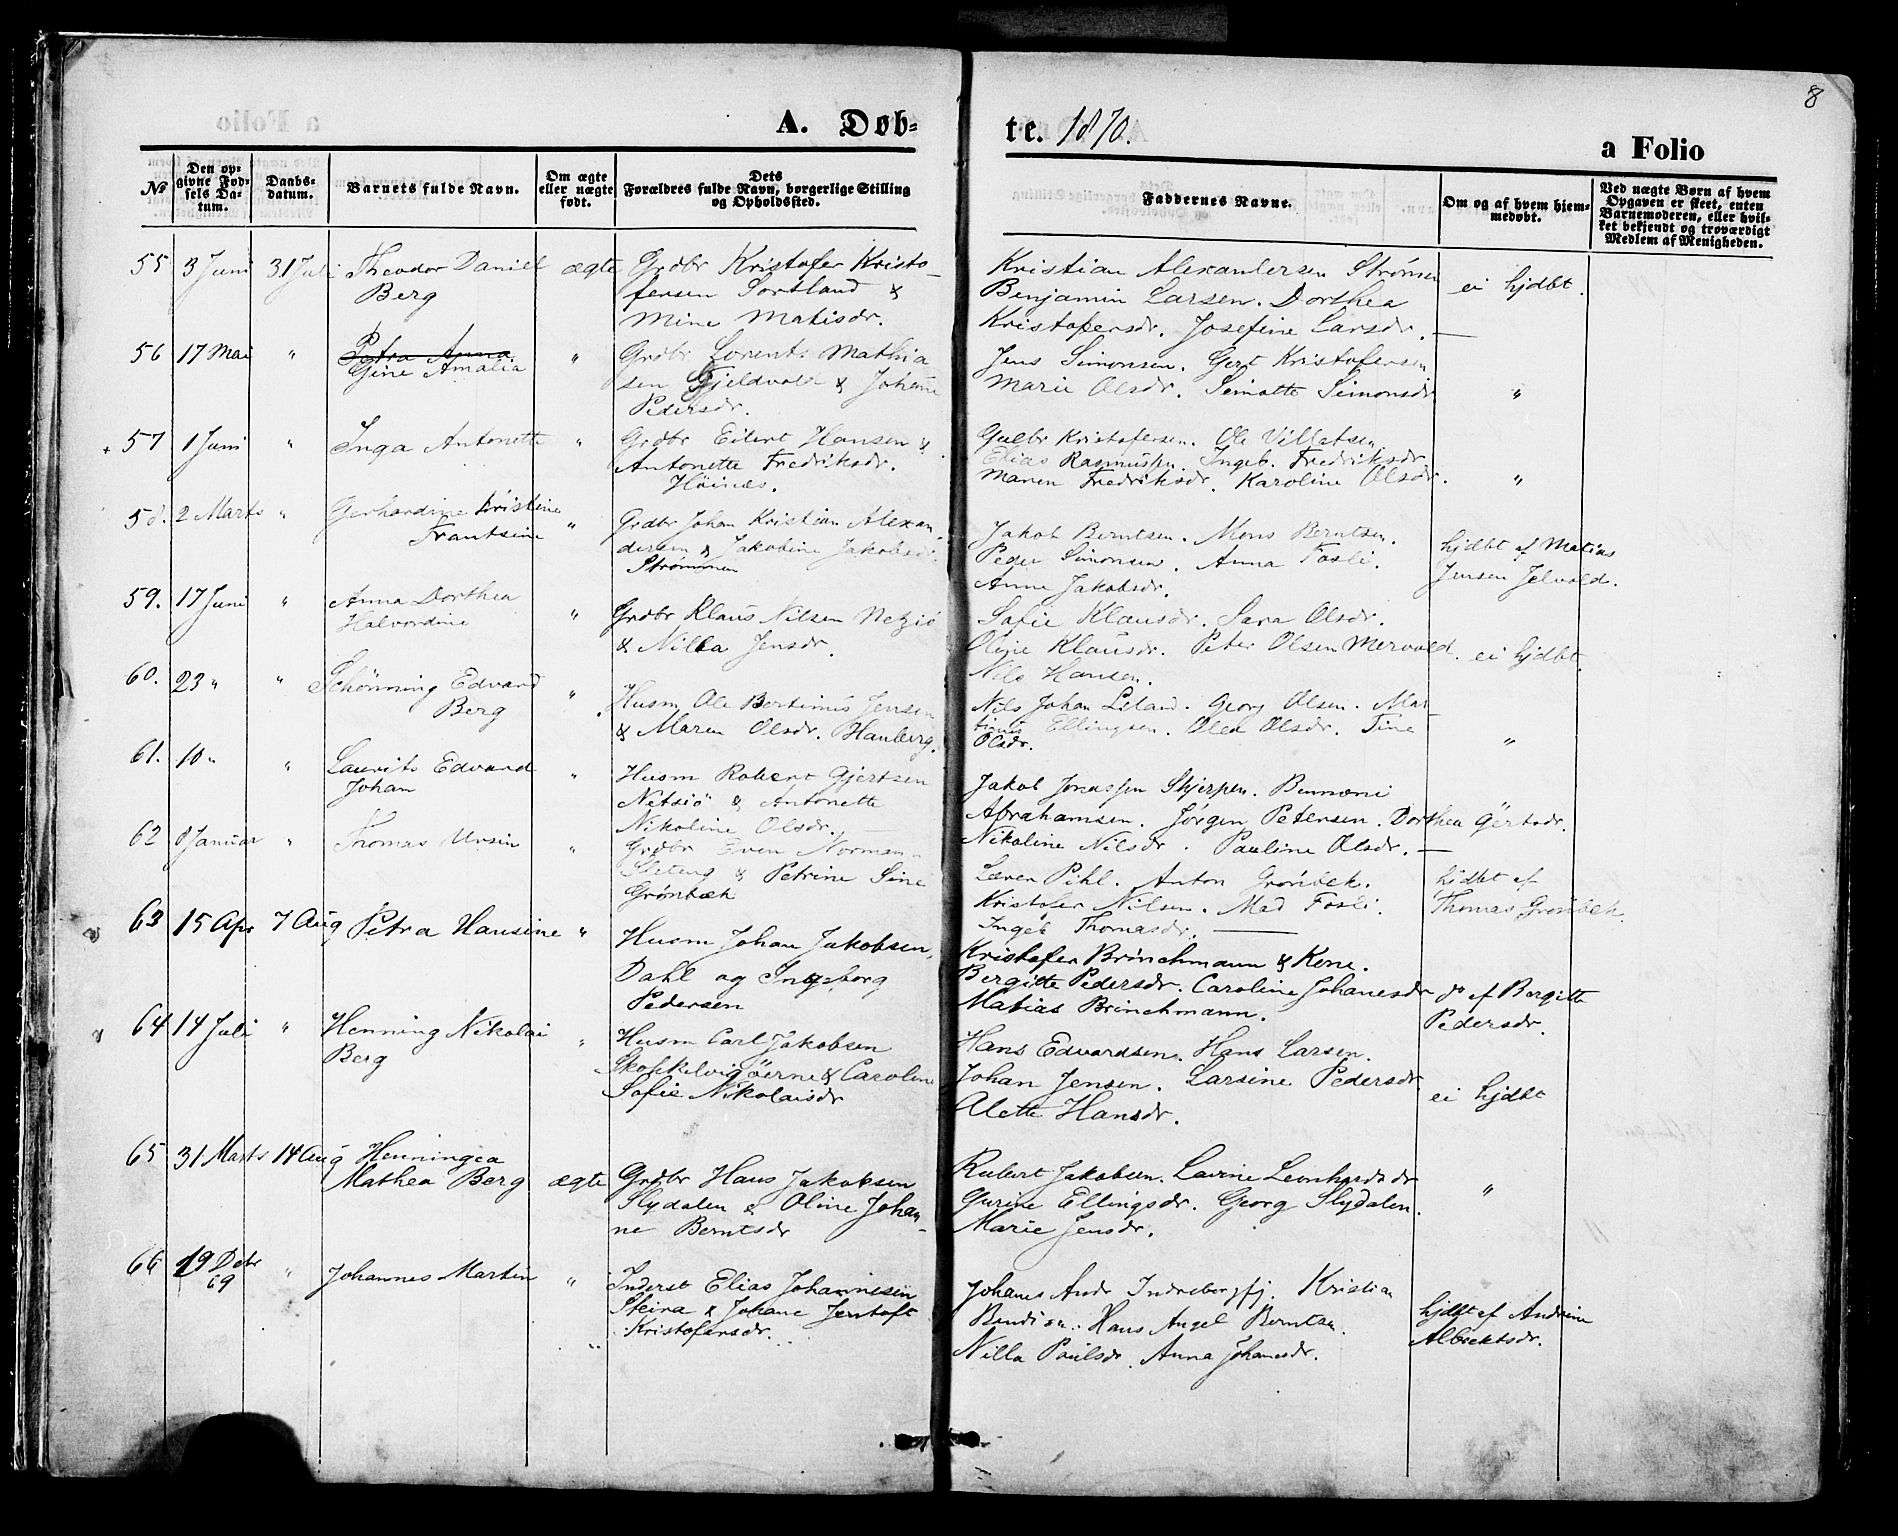 8
A. Døb-
te. 1870.
a Folio
№
Den op-
givne Fød-
sels Da-
tum.
Daabs-
datum.
Barnets fulde Navn.
Om ægte
eller uægte
født.
Dets
Forældres fulde Navn, borgerlige Stilling
og Opholdssted.
Faddernes Navne.
Om og af hvem hjem-
medøbt.
Ved uægte Børn af hvem
Opgaven er skeet, enten
Barnemoderen, eller hvil-
ket bekjendt og troværdigt
Medlem af Menigheden.
55 3 Juni 31 Juli Theodor Daniel
Berg
ægte
Grdbr Kristofer Kristo-
fersen Sortland &
Mine Matisdr.
Kristian Alexandersen Strømen
Benjamin Larsen. Dorthea
Kristofersdr. Josefine Larsdr.
ei hjdbt.
56 17 Mai " Petra Anna
Gine Amalia
"
Grdbr Lorents Mathia
sen & Johane
Pedersdr.
Jens Simonsen. Gert Kristofersen
Marie Olsdr. Simonsdr
"
57 1 Juni " Inga Antonette "
Grdbr Eilert Hansen &
Antonette Fredriksdr.
Høinæs.
Gulbr Kristofersen. Ole Villatsen
Elias Rasmussen. Ingeb. Fredriksdr
Maren Fredriksdr. Karoline Olsdr.
"
58. 2 Marts " Gerhardine Kristine
Frantsine
"
Grdbr Johan Kristian Alexan-
dersen & Jakobine Jakobsdr.
Strømmen
Jakob Berntsen. Mons Berntsen.
Peder Simonsen. Anna Fosli.
Anne Jakobsdr.
hjdbt af Matias
Jensen Jelvold.
59. 17 Juni " Anna Dorthea
Halvordine
"
Grdbr Klaus Nilsen Netsiö
& Nilla Jensdr.
Sofie Klausdr. Sara Olsdr.
Oline Klausdr. Peter Olsen Mervold.
Nils Hansen.
ei hjdbt.
60. 23 " " Schönning Edvard
Berg
"
Husm Ole Bertinus Jensen
& Maren Olsdr. Hauberg.
Nils Johan Liland. Georg Olsen. Mar-
tinus Ellingsen. Olea Olsdr. Tine
Olsdr.
"
61. 10 " " Laurits Edvard
Johan
"
Husm Robert Gjertsen
Netsiö & Antonette
Nikoline Olsdr.
Jakob Jonassen Skjerpen. Benoni
Abrahamsen. Jörgen Petersen. Dorthea Gjertsdr.
Nikoline Nilsdr. Pauline Olsdr.
62 8 Januar " Thomas Ursin "
Grdbr Even Norman
Sleteng & Petrine Sine
Grönbæk
Lærer Pihl. Anton Grönbek.
Kristofer Nilsen. Mad Fosli.
Ingeb Thomasdr.
hjdbt af
Thomas Grönbek.
63 15 Apr 7 Aug Petra Hansine "
Husm Johan Jakobsen
Dahl og Ingeborg
Pedersen
Kristofer Brinchmann & Kone.
Bergitte Pedersdr. Caroline Johanesdr
Matias Brinchmann.
do af Bergitte
Pedersdr.
64 14 Juli " Henning Nikolai
Berg
"
Husm Carl Jakobsen
Skokkelvigöerne & Caroline
Sofie Nikolaisdr
Hans Edvardsen. Hans Larsen.
Johan Jensen. Larsine Pedersdr
Alette Hansdr.
ei hjdbt
65 31 Marts 14 Aug Henningea
Mathea Berg
ægte
Grdbr Hans Jakobsen
Slydalen & Oline Johan-
ne Berntsdr
Rubert Jakobsen. Lavine Leonhardsdr
Gurine Ellingsdr. Georg Slydalen.
Marie Jensdr.
"
66 19 Debr
69
" Johannes Martin "
Inderst Elias Johannesen
Steira & Johane Jentoft
Kristofersdr.
Johanes Andr Indrebergfj. Kristian
Bendisn. Hans Angel Berntsn.
Nilla Paulsdr. Anna Johanesdr.
hjdbt af Andrine
Albrektsdr.